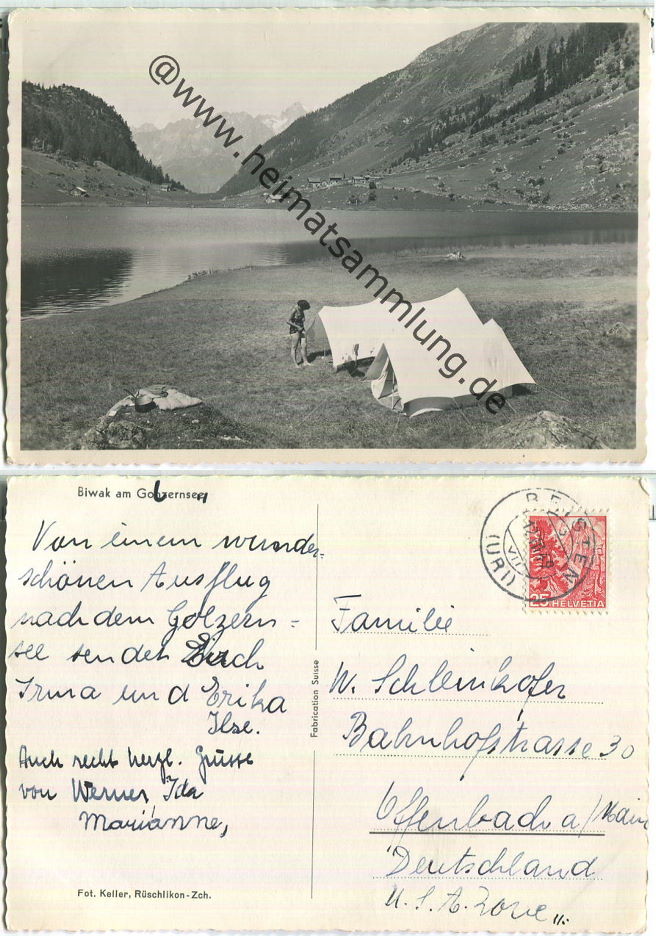 @www.heimatsammlung.de
Biwak am Golzernsee
Von einem wunder-
schönen Ausflug
nach dem Golzern-
see sendet Euch
Irma und Erika
Ilse.
Auch recht herzl. Grüsse
von Werner, Ida
Marianne,
Fot. Keller, Rüschlikon-Zch.
Fabrication Suisse
BRISTEN
(URI)
25 HELVETIA
Familie
W. Schleinkofer
Bahnhofstrasse 30
Offenbach a/Main
Deutschland
U.S.A. Zone